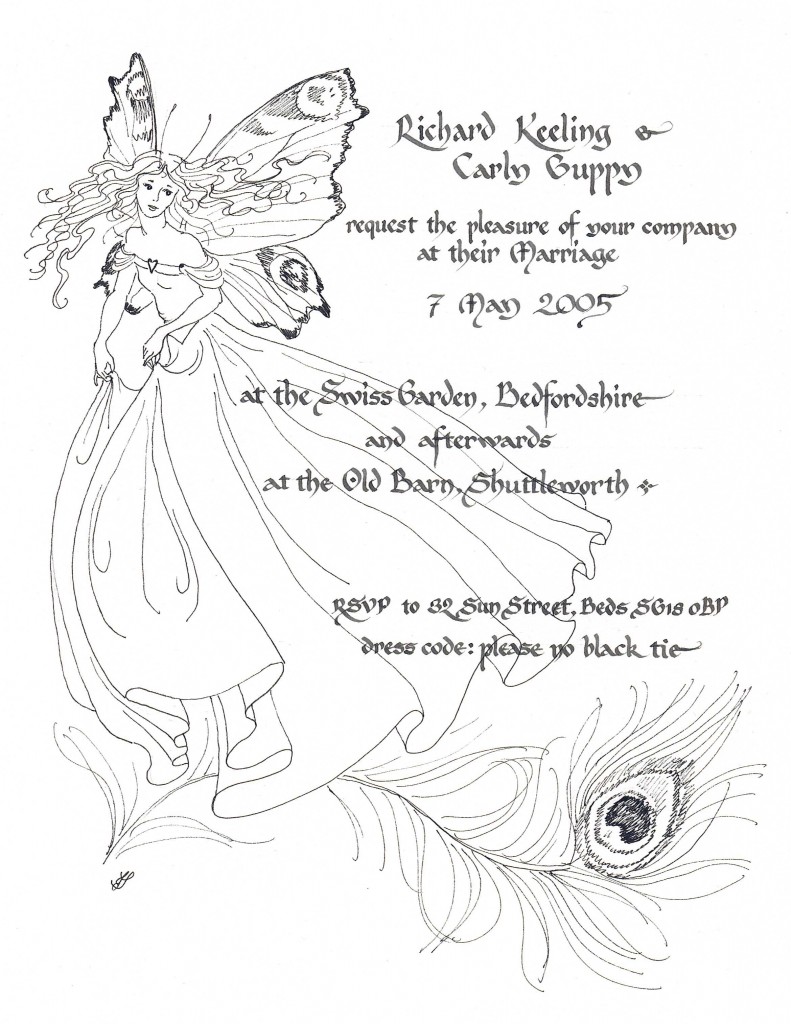 Richard Keeling &
Carly Guppy
request the pleasure of your company
at their Marriage
7 May 2005
at the Swiss Garden, Bedfordshire
and afterwards
at the Old Barn, Shuttleworth
RSVP to 32 Sun Street, Beds SG18 0BP
dress code: please no black tie